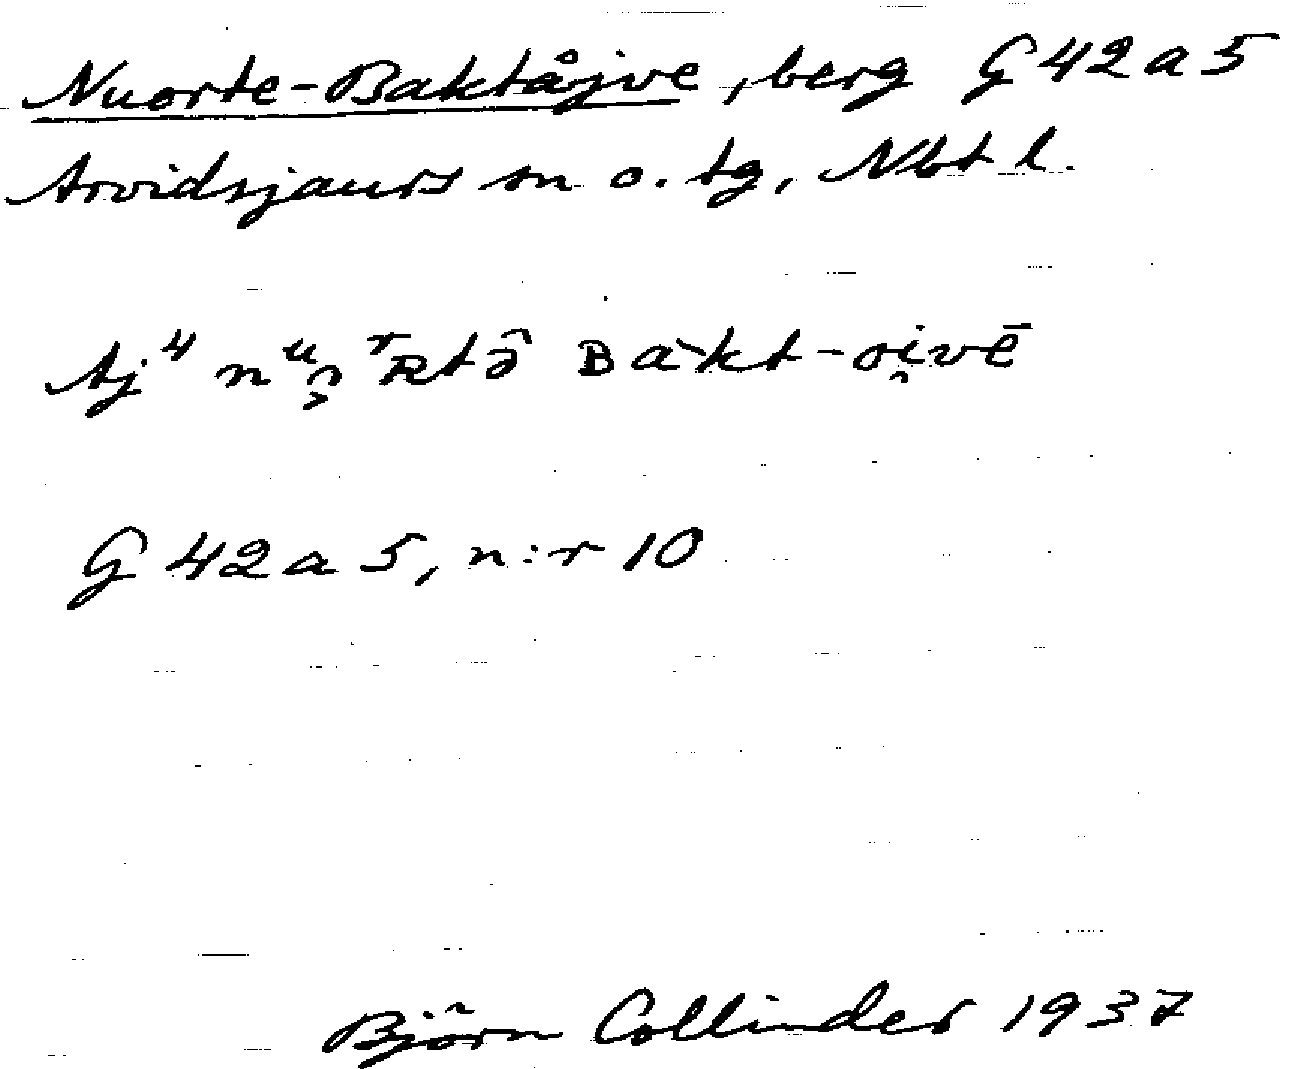 Nuorte-Baktåjve, berg G 42 a 5
Arvidsjaurs sn o. tg, Nbt l.
Aj⁴
Bàkt-oi̯vē
G 42 a 5, n:r 10
Björn Collinder 1937